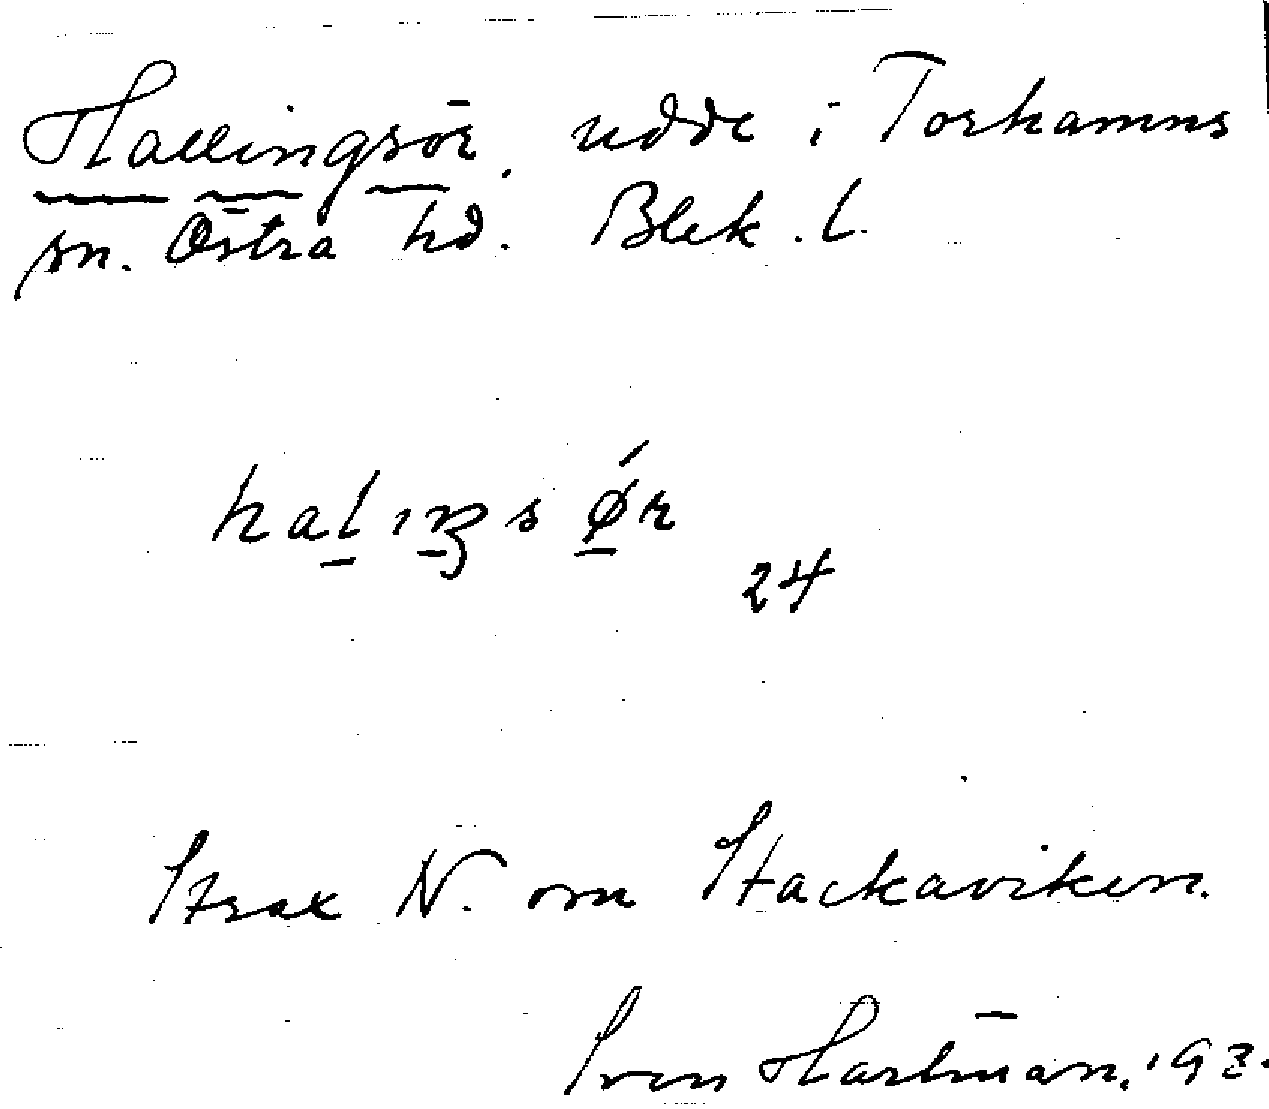 Hallingsör, udde i Torhamns
sn. Östra hd. Blek. l.
haliŋsǿr
24
Strax N. om Stackaviken.
Sven Hartman, 193.